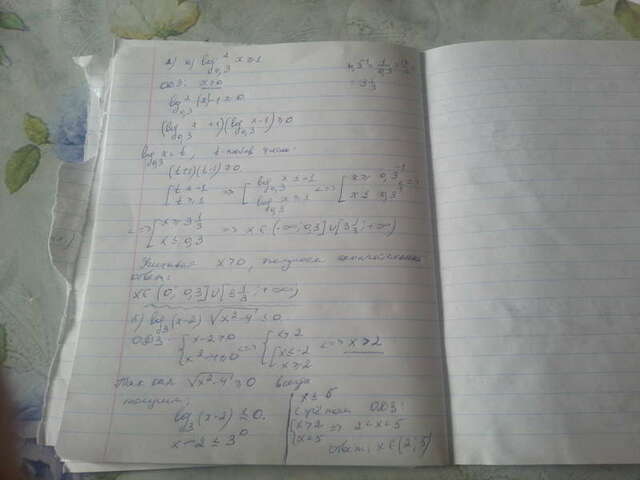 2) а) log²₀,₃ x ≥ 1
ОДЗ: x>0
log²₀,₃ (x) - 1 ≥ 0
(log₀,₃ x + 1)(log₀,₃ x - 1) ≥ 0
log₀,₃ x = t, t - любое число
(t+1)(t-1) ≥ 0
[t ≤ -1 t ≥ 1 => [log₀,₃ x ≤ -1 log₀,₃ x ≥ 1 <=> [x ≥ 0,3⁻¹ x ≤ 0,3 <=>
<=> [x ≥ 3 1/3 x ≤ 0,3 => x ∈ (-∞; 0,3] ∪ [3 1/3; +∞)
Учитывая x>0, получаем окончательный
ответ:
x ∈ (0; 0,3] ∪ [3 1/3; +∞)
(x-2) √(x²-4) ≤ 0
ОДЗ: {x-2>0 x²-4≥0 <=> {x>2 [x≤-2 x≥2 <=> x>2
Так как √(x²-4) ≥ 0 всегда
получим:
(x-2) ≤ 0.
x-2 ≤ 3⁰
x ≤ 5
с учётом ОДЗ:
{x>2 x≤5 => 2<x≤5
ответ: x ∈ (2; 5]